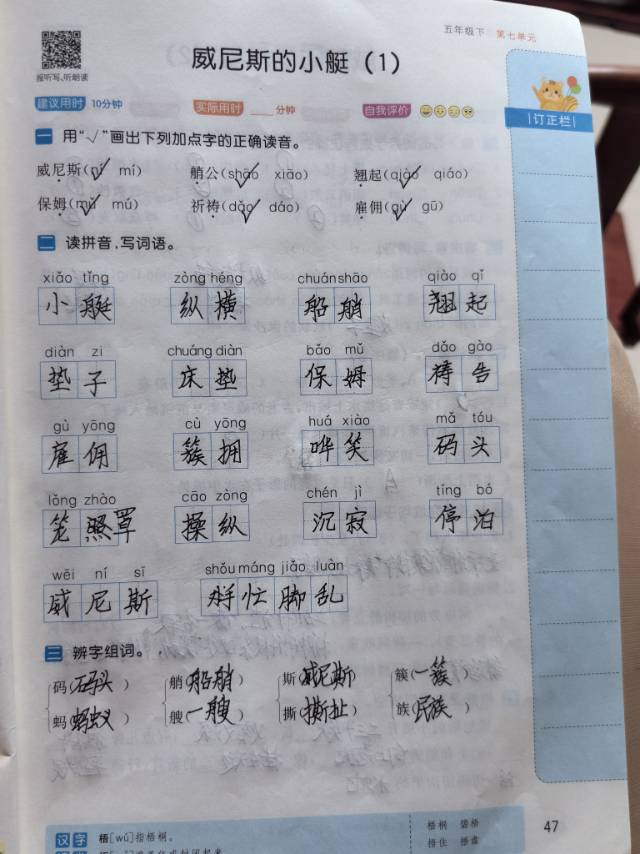 五年级下 第七单元
威尼斯的小艇（1）
建议用时 10分钟 实际用时 ____分钟 自我评价
订正栏
一 用“√”画出下列加点字的正确读音。
威尼斯(ní√ mí) 艄公(shāo√ xiāo) 翘起(qiào√ qiáo)
保姆(mǔ√ mú) 祈祷(dǎo√ dáo) 雇佣(gù√ gū)
二 读拼音，写词语。
xiǎo tǐng zòng héng chuán shāo qiào qǐ
小艇 纵横 船艄 翘起
diàn zi chuáng diàn bǎo mǔ dǎo gào
垫子 床垫 保姆 祷告
gù yōng cù yōng huá xiào mǎ tóu
雇佣 簇拥 哗笑 码头
lǒng zhào cāo zòng chén jì tíng bó
笼 罩 操纵 沉寂 停泊
wēi ní sī shǒu máng jiǎo luàn
威尼斯 手忙脚乱
三 辨字组词。
码(码头) 艄(船艄) 斯(威尼斯) 簇(一簇)
蚂(蚂蚁) 艘(一艘) 撕(撕扯) 族(民族)
汉字 梧[wú]指梧桐。
梧桐
47